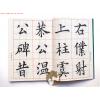 右僕射
上柱虞
恭公温
公碑昔